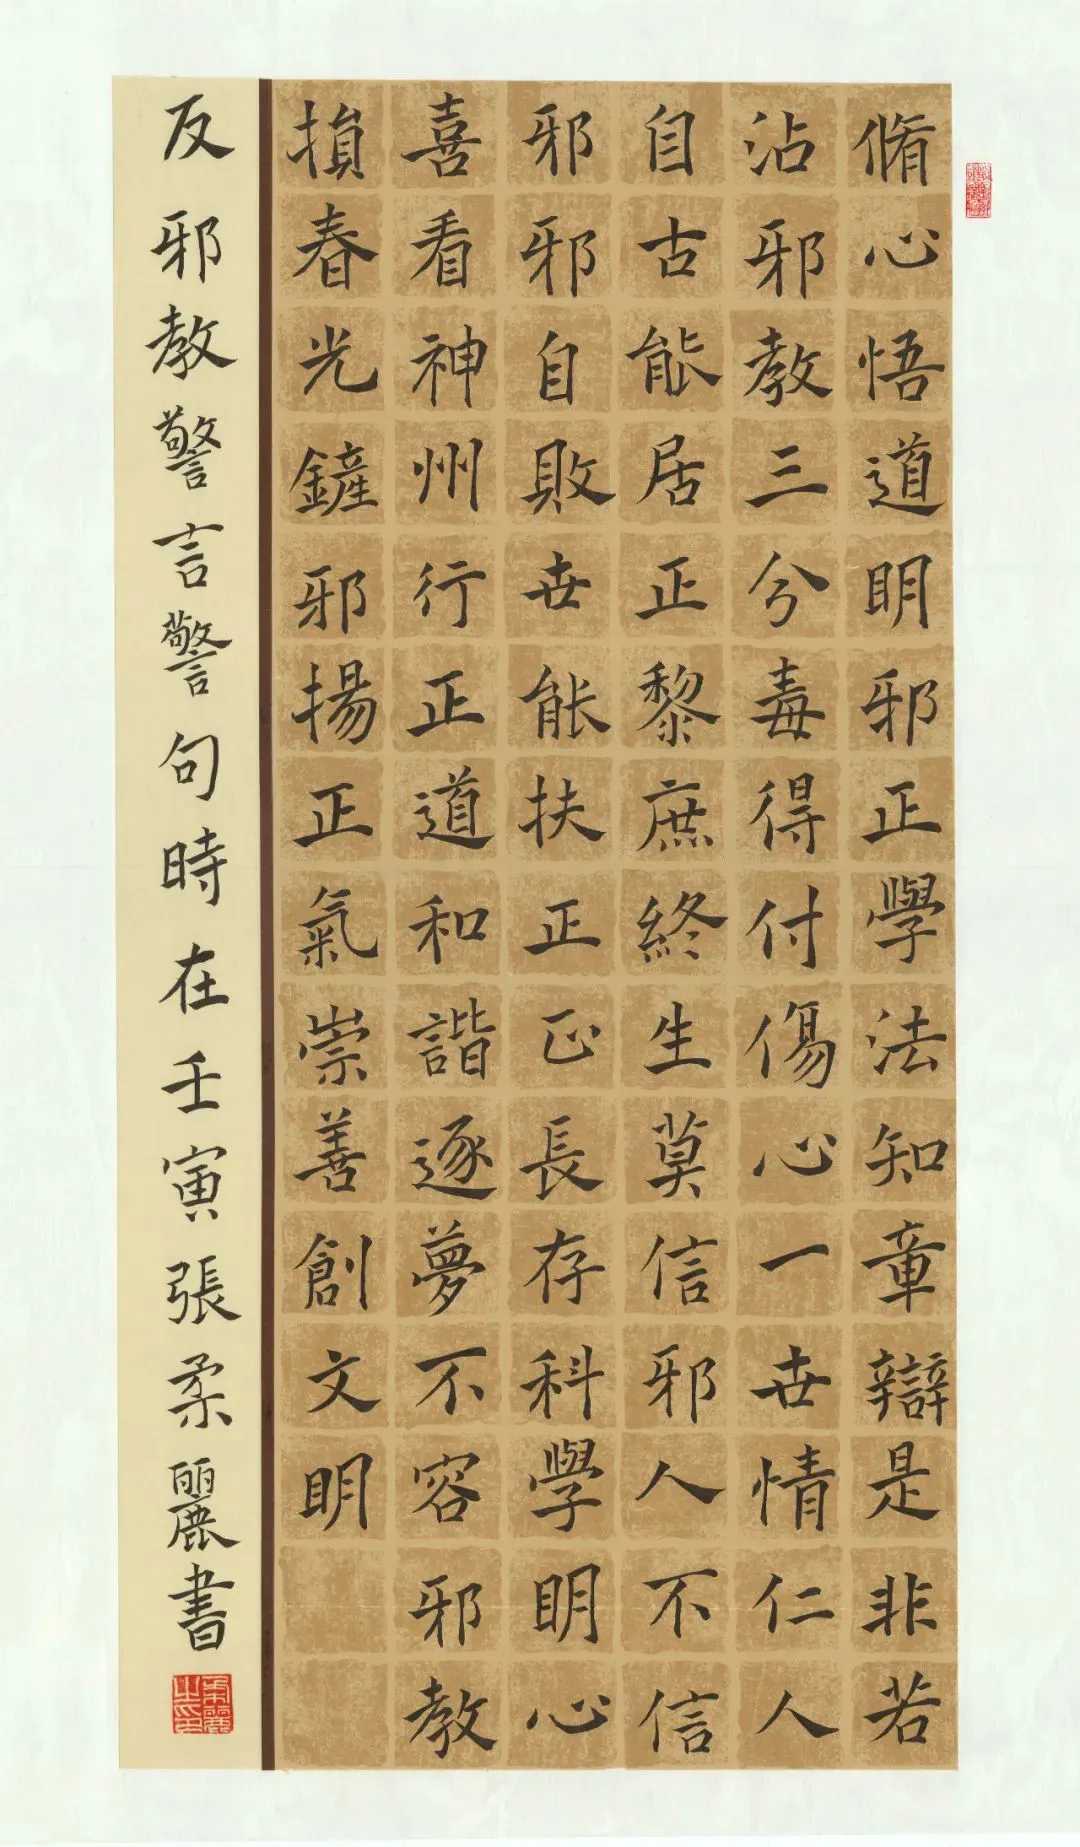 脩心悟道明邪正學法知章辯是非若
沾邪教三分毒得付傷心一世情仁人
自古能居正黎庶終生莫信邪人不信
邪邪自敗世能扶正正長存科學明心
喜看神州行正道和諧逐夢不容邪教
損春光鏟邪揚正氣崇善創文明
反邪教警言警句時在壬寅張柔麗書
柔麗之印